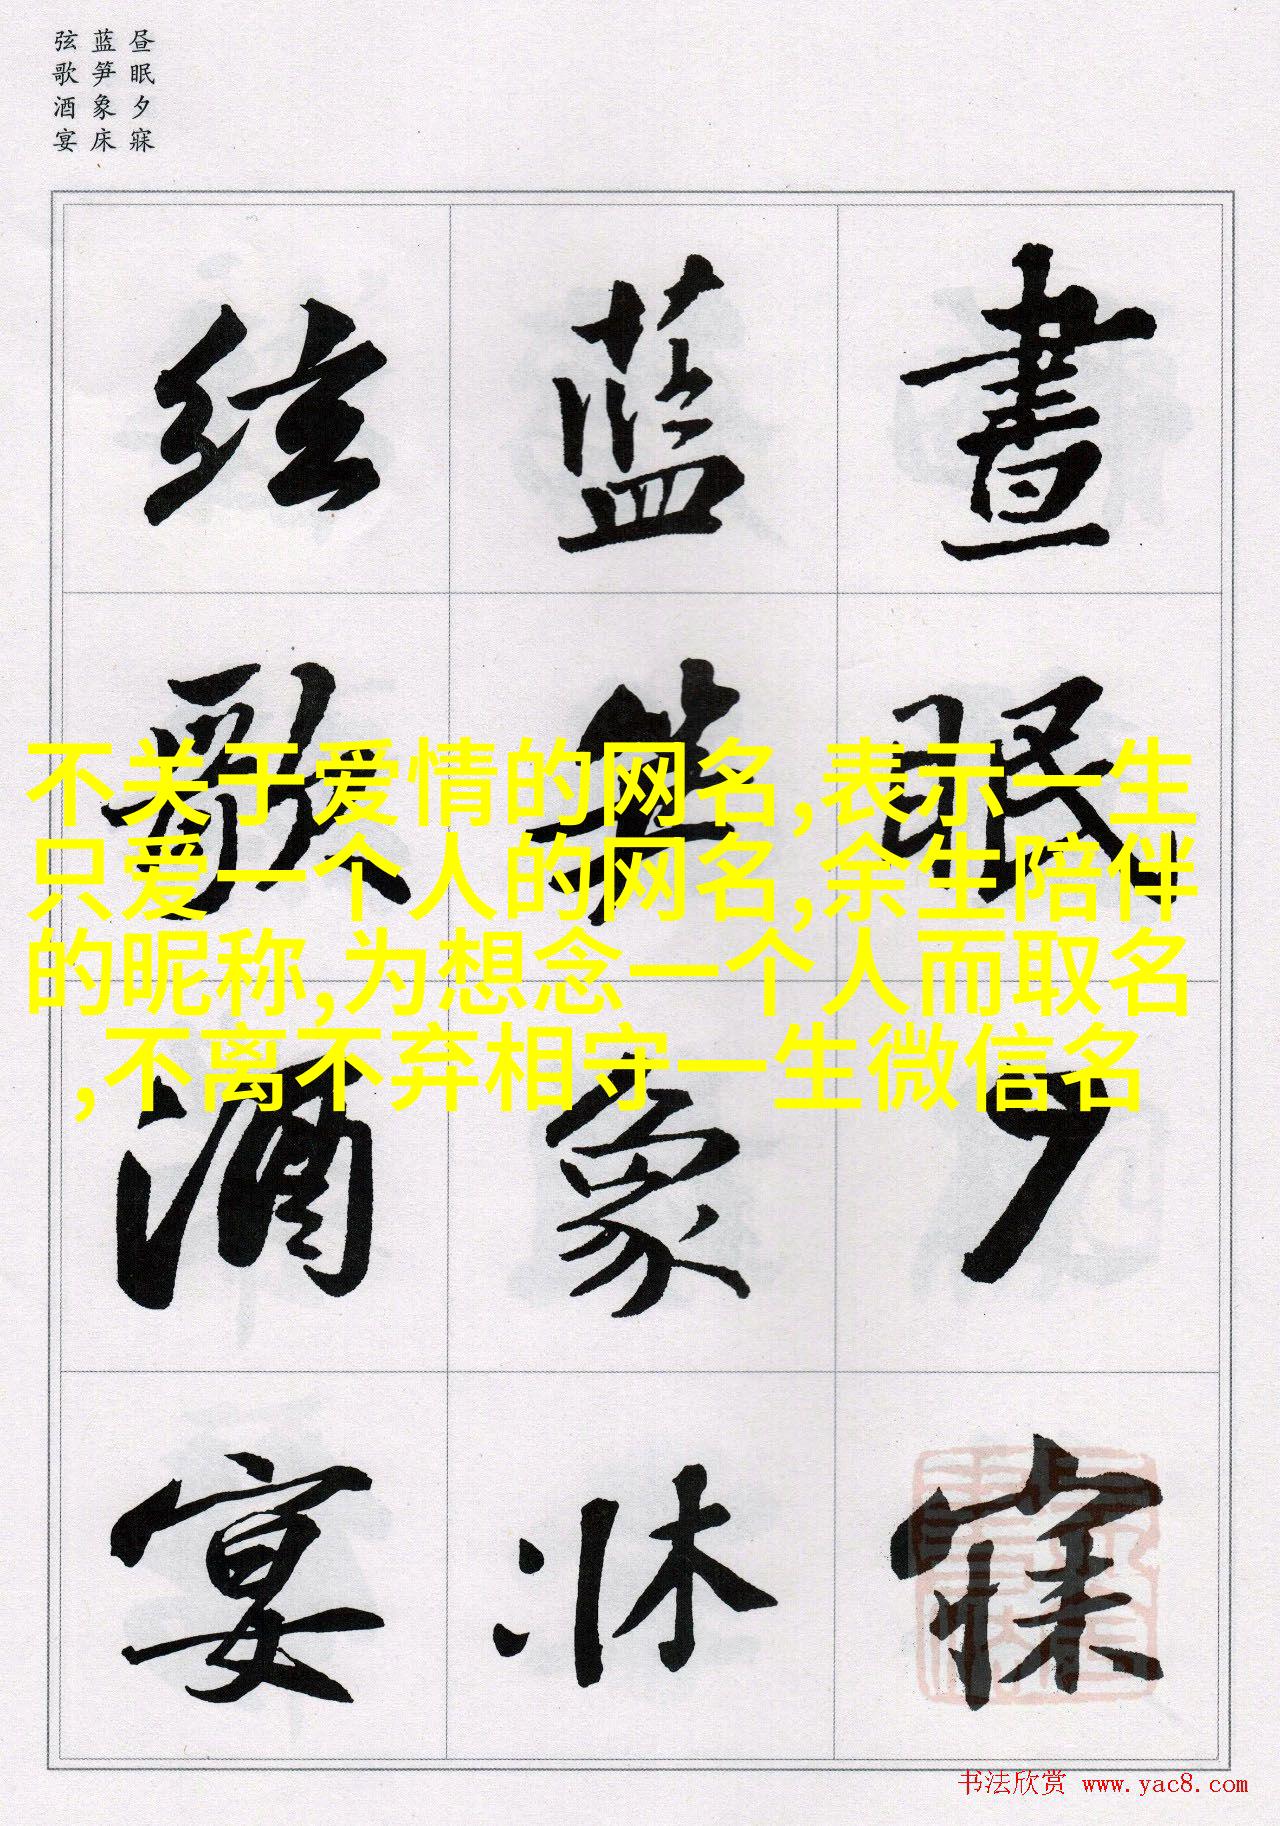 昼眠夕寐
蓝笋象床
弦歌酒宴
晝眠夕寐
蓝笋象床
弦歌酒宴
不关于爱情的网名,表示一生
只爱一个人的网名,余生陪伴
的昵称,为想念一个人而取名
,不离不弃相守一生微信名
书法欣赏 www.yac8.com